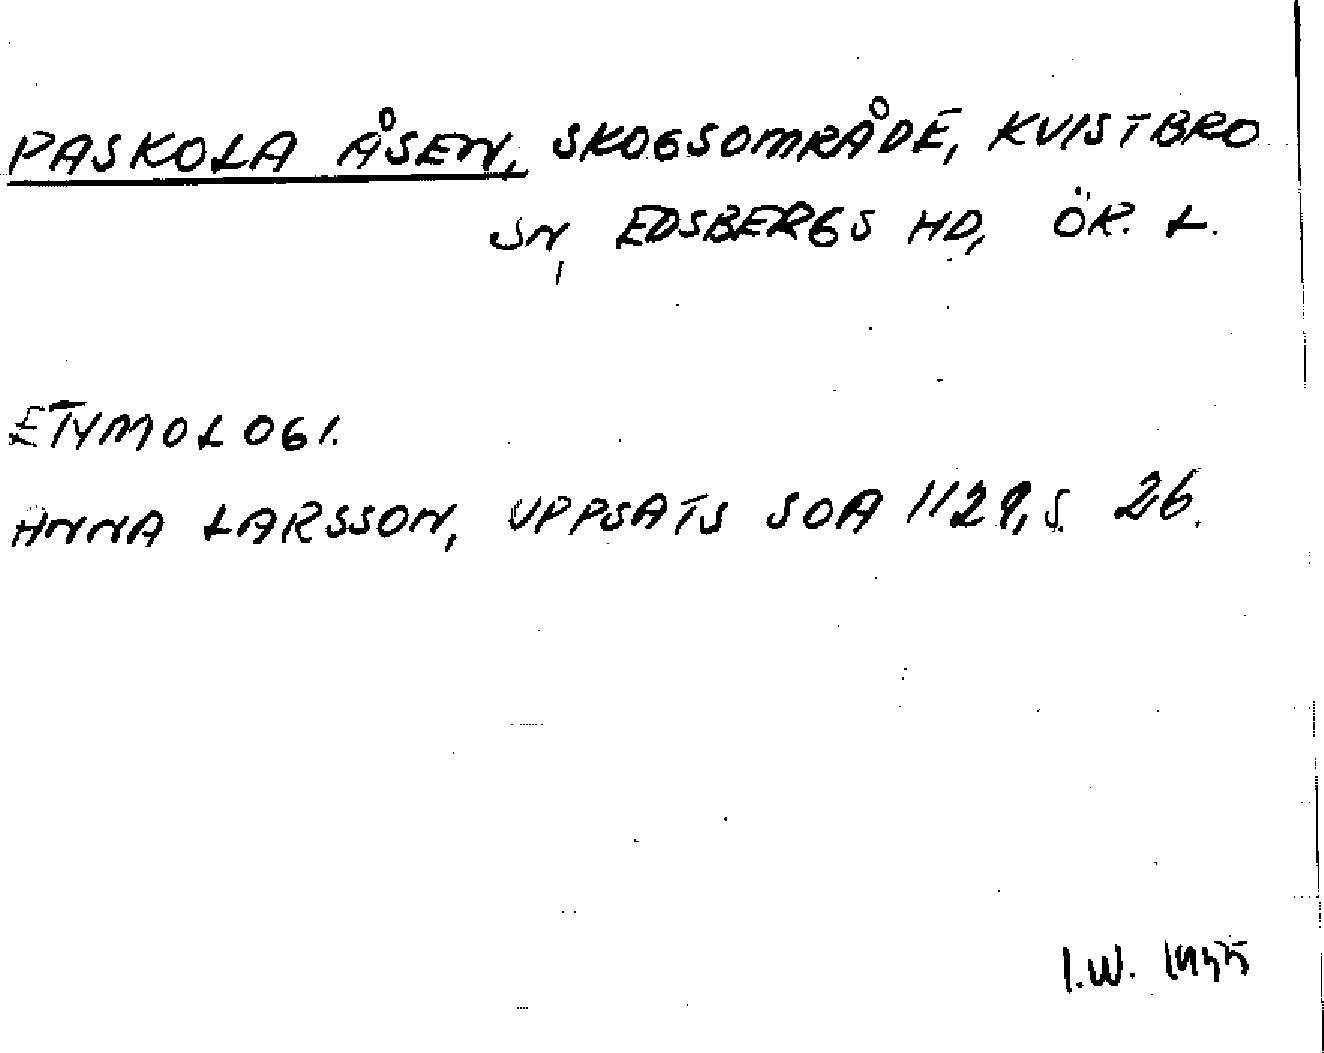 PASKOLA ÅSEN, SKOGSOMRÅDE, KVISTBRO
SN, EDSBERGS HD, ÖR. L.
ETYMOLOGI.
ANNA LARSSON, UPPSATS SOA 1129, S. 26.
I.W. 1955